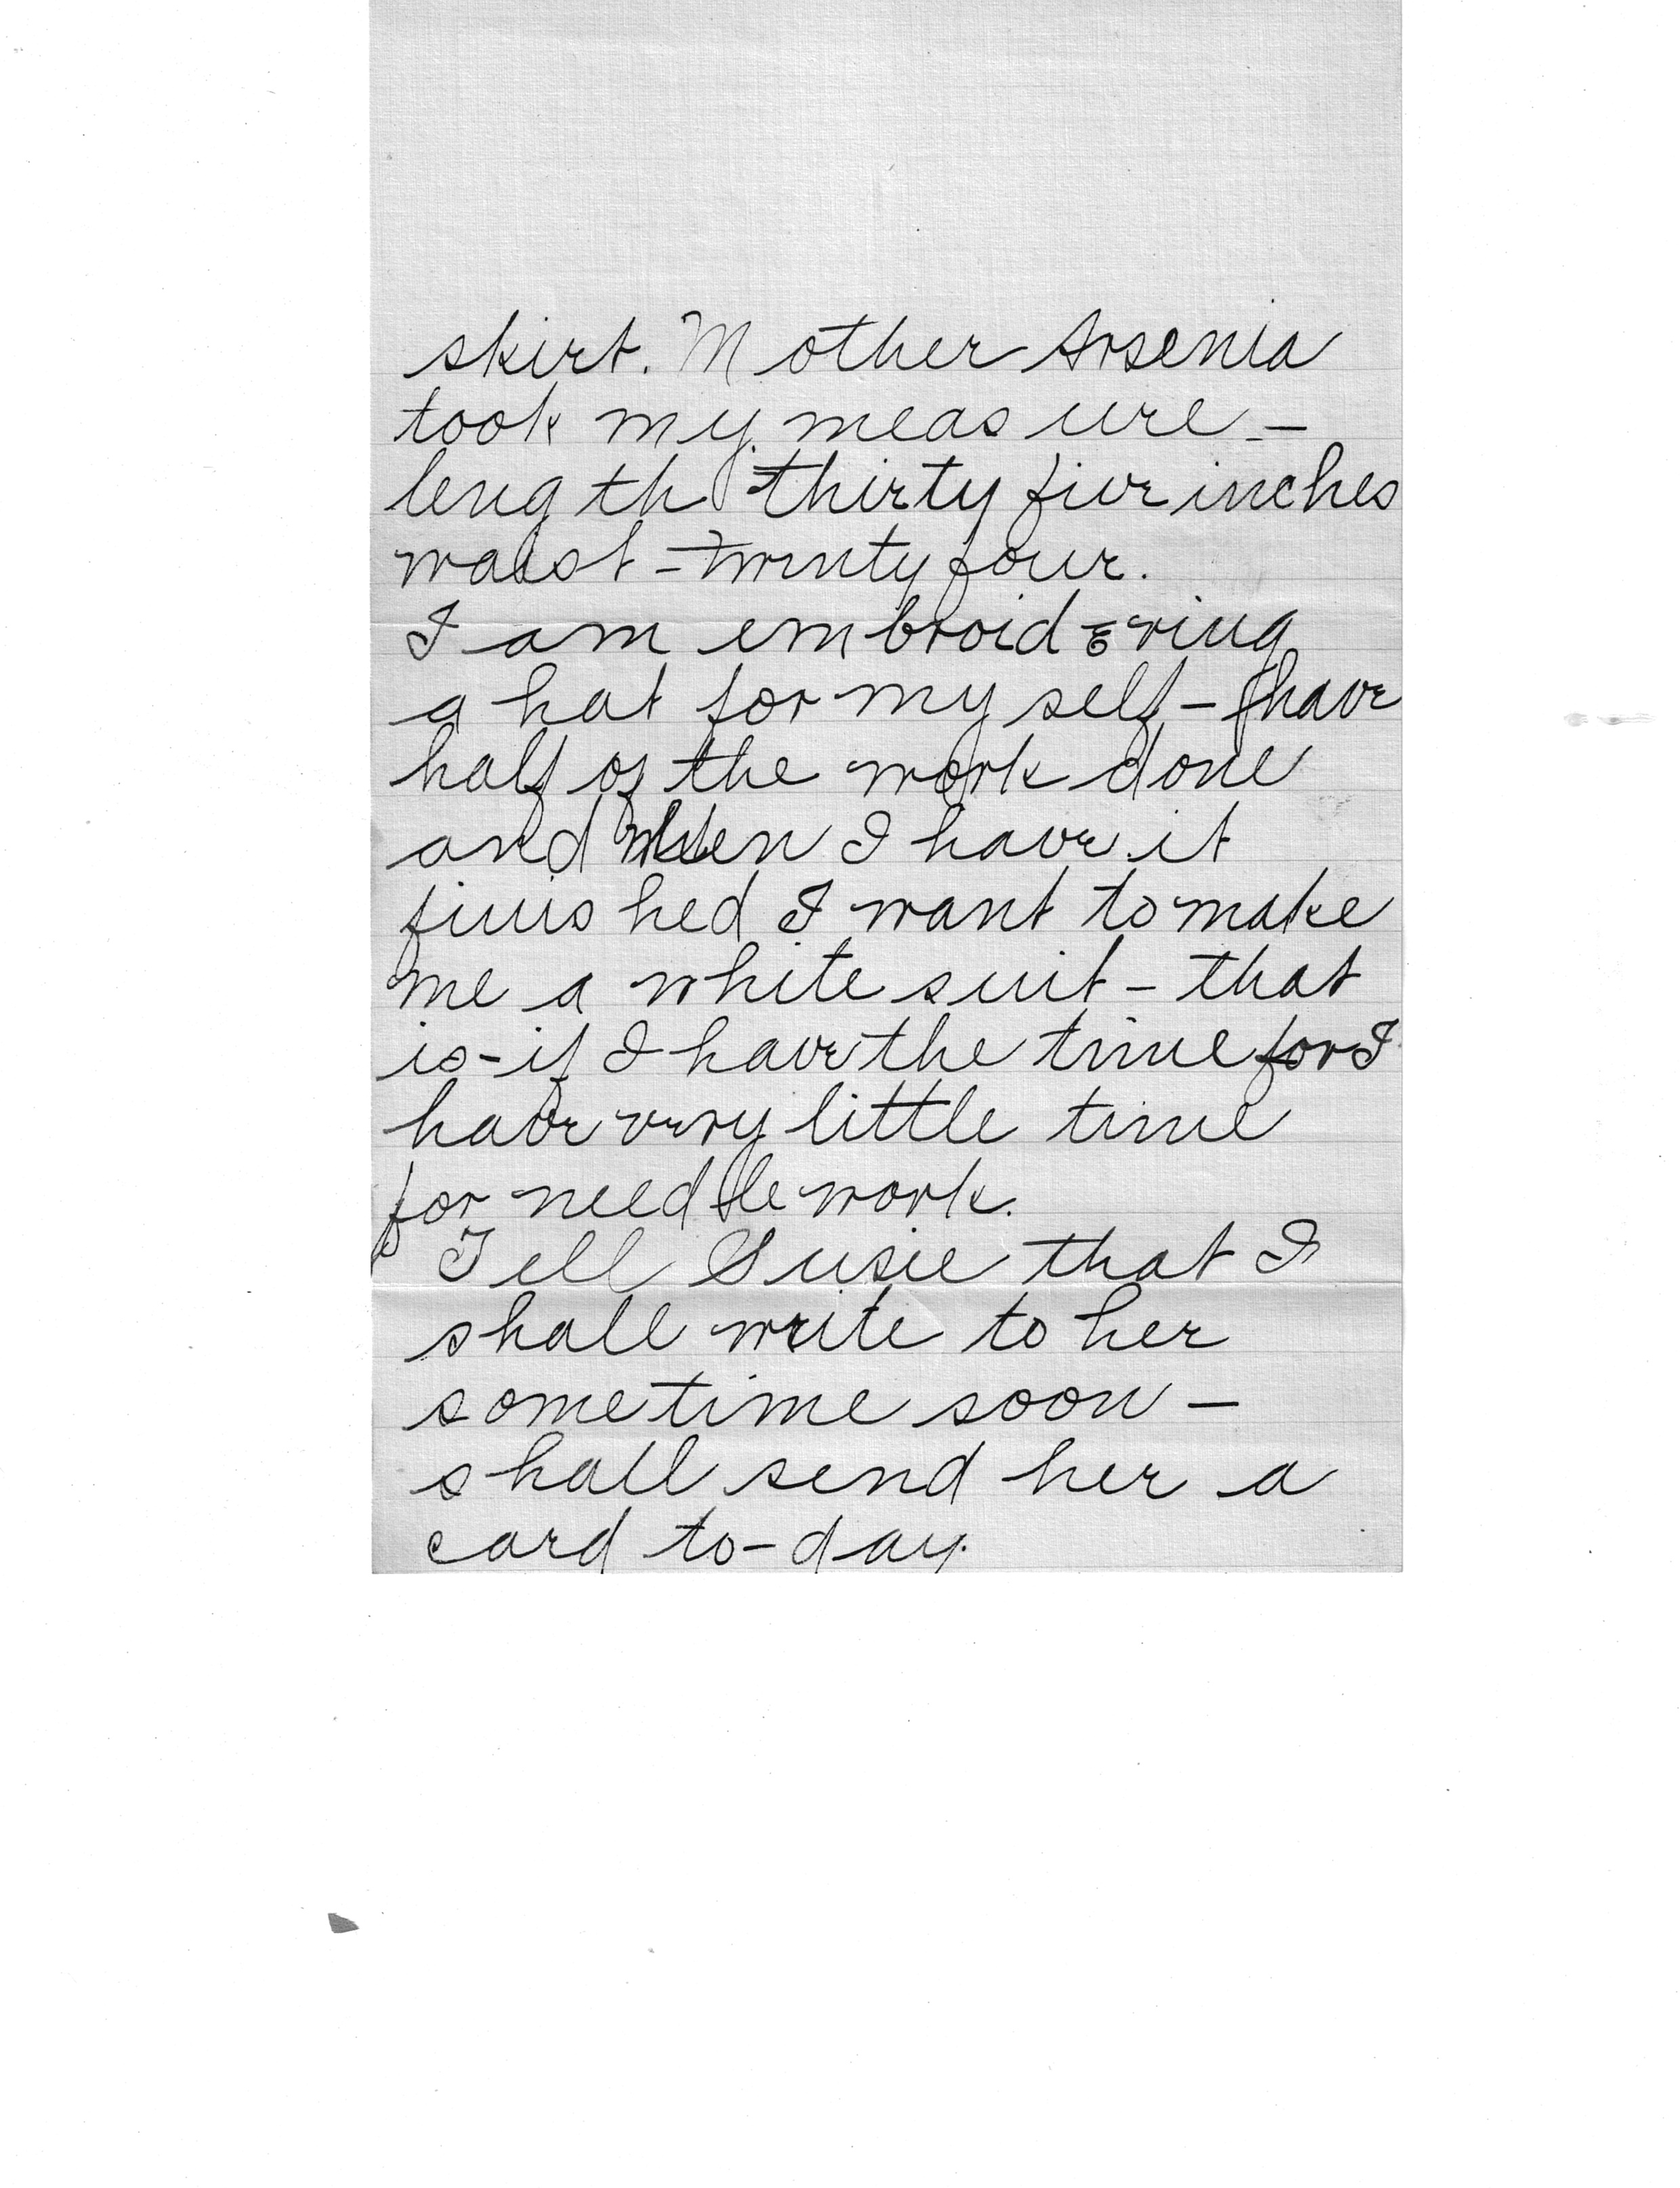 skirt. Mother Arsenia
took my measure -
length thirty five inches
waist - twenty four.
I am embroidering
a hat for my self - have
half of the work done
and when I have it
finished I want to make
me a white suit - that
is - if I have the time for I
have very little time
for needle work.
Tell Susie that I
shall write to her
sometime soon -
shall send her a
card to-day.